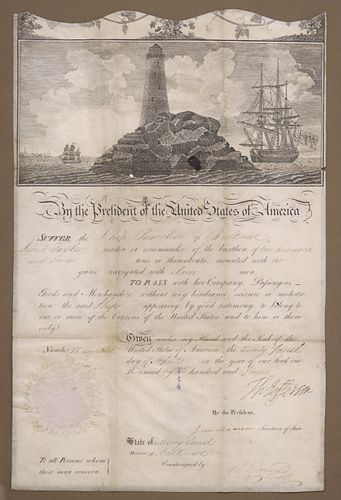 By the President of the United States of America
SUFFER the Ship of Baltimore
master or commander of the burthen of two hundred
tons or thereabouts mounted with no
guns navigated with eleven men
TO PASS with her Company, Passengers
Goods and Merchandize without any hindrance seizure or molestation
the said Ship appearing by good testimony to belong to
one or more of the Citizens of the United States and to him or them
only.
Given under my Hand and the Seal of the
United States of America, the twenty
day of April in the year of our Lord one
thousand eight hundred and
Number
Th Jefferson
By the President,
James Madison Secretary of State
State of Maryland
District of Baltimore
Countersigned by
To all Persons whom
these may concern.